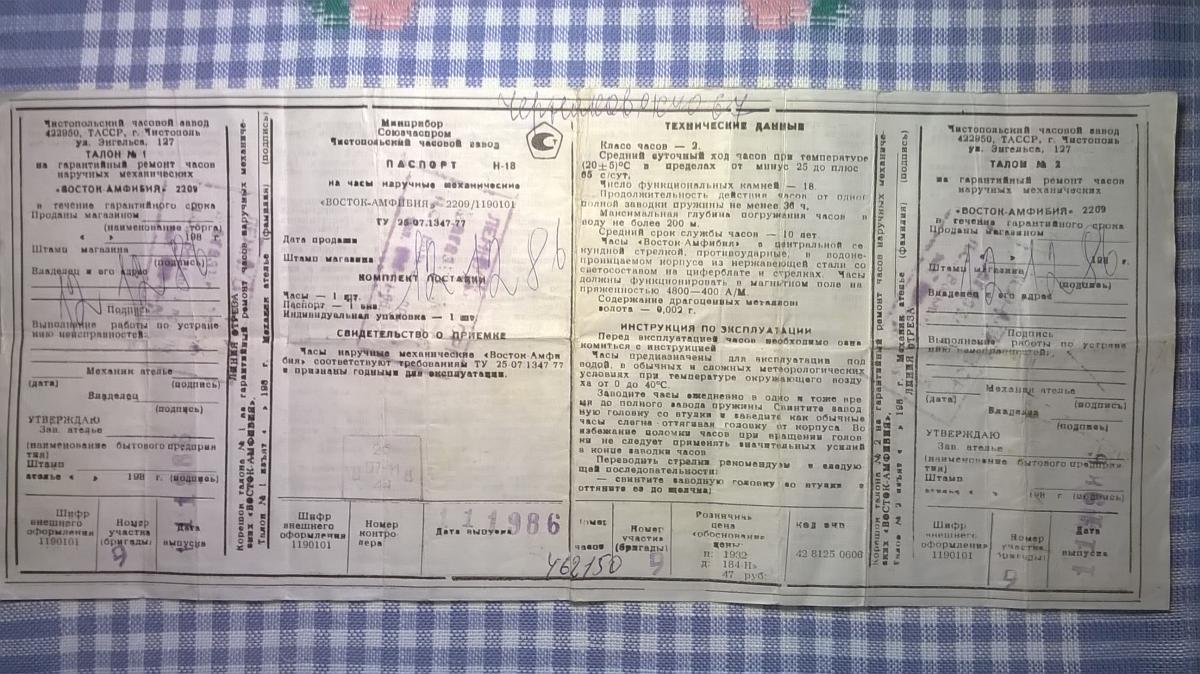 Чистопольский часовой завод
422950, ТАССР, г. Чистополь
ул. Энгельса, 127
ТАЛОН № 1
на гарантийный ремонт часов
наручных механических
«ВОСТОК-АМФИБИЯ» 2209
в течение гарантийного срока
Проданы магазином
(наименование торга)
« » 198 г.
Штамп магазина
(подпись)
Владелец и его адрес
12 12 86
Подпись
Выполнение работы по устране
нию неисправностей:
Механик ателье
(дата) (подпись)
Владелец
(подпись)
УТВЕРЖДАЮ
Зав. ателье
(наименование бытового предприя
тия)
Штамп
ателье « » 198 г. (подпись)
Шифр
внешнего
оформления
1190101
Номер
участка
(бригады)
9
Дата
выпуска
ЛИНИЯ ОТРЕЗА
Корешок талона № 1 на гарантийный ремонт часов наручных механиче-
ских «ВОСТОК-АМФИБИЯ».
Талон № 1 изъят « » 198 г. Механик ателье (фамилия) (подпись)
Минприбор
Союзчаспром
Чистопольский часовой завод
ПАСПОРТ Н-18
на часы наручные механические
«ВОСТОК-АМФИБИЯ» 2209/1190101
ТУ 25-07.1347-77
Дата продажи
Штамп магазина
12 12 86
КОМПЛЕКТ ПОСТАВКИ
Часы — 1 шт.
Паспорт — 1 экз.
Индивидуальная упаковка — 1 шт.
СВИДЕТЕЛЬСТВО О ПРИЕМКЕ
Часы наручные механические «Восток-Амфи
бия» соответствуют требованиям ТУ 25-07.1347 77
и признаны годными для эксплуатации.
Шифр
внешнего
оформления
1190101
Номер
контро
лера
Дата выпуска
1 1 1986
462150
ТЕХНИЧЕСКИЕ ДАННЫЕ
Класс часов — 2.
Средний суточный ход часов при температуре
(20±5)°С в пределах от минус 25 до плюс
65 с/сут.
Число функциональных камней — 18.
Продолжительность действия часов от одной
полной заводки пружины не менее 36 ч.
Максимальная глубина погружения часов в
воду не более 200 м.
Средний срок службы часов — 10 лет.
Часы «Восток-Амфибия» с центральной се
кундной стрелкой, противоударные, в водоне-
проницаемом корпусе из нержавеющей стали со
светосоставом на циферблате и стрелках. Часы
должны функционировать в магнитном поле на
пряженностью 4800—400 А/М.
Содержание драгоценных металлов:
золота — 0,002 г.
ИНСТРУКЦИЯ ПО ЭКСПЛУАТАЦИИ
Перед эксплуатацией часов необходимо озна
комиться с инструкцией
Часы предназначены для эксплуатации под
водой, в обычных и сложных метеорологических
условиях при температуре окружающего возду
ха от 0 до 40°С.
Заводите часы ежедневно в одно и тоже вре
мя до полного завода пружины Свинтите завод
ную головку со втулки и заведите как обычные
часы слегка оттягивая головку от корпуса Во
избежание поломки часов при вращении голов
ки не следует применять значительных усилий
в конце заводки часов
Переводить стрелки рекомендуем в следую
щей последовательности:
— свинтите заводную головку со втулки и
оттяните ее до щелчка;
часов
Номер
участка
(бригады)
9
Розничная
цена
«обоснование
цены»
п: 1932
д: 184-Н»
47 руб.
код окп
42 8125 0606
Корешок талона № 2 на гарантийный ремонт часов наручных механиче-
ских «ВОСТОК-АМФИБИЯ».
Талон № 2 изъят « » 198 г. Механик ателье (фамилия) (подпись)
ЛИНИЯ ОТРЕЗА
Чистопольский часовой завод
422950, ТАССР, г. Чистополь
ул. Энгельса, 127
ТАЛОН № 2
на гарантийный ремонт часов
наручных механических
«ВОСТОК-АМФИБИЯ» 2209
в течение гарантийного срока
Проданы магазином
198 г.
Штамп магазина
(подпись)
Владелец и его адрес
Подпись
Выполнение работы по устране
нию неисправностей:
Механик ателье
(дата) (подпись)
Владелец
(подпись)
УТВЕРЖДАЮ
Зав. ателье
(наименование бытового предприя
тия)
Штамп
ателье « » 198 г. (подпись)
Шифр
внешнего
оформления
1190101
Номер
участка
(бригады)
9
Дата
выпуска